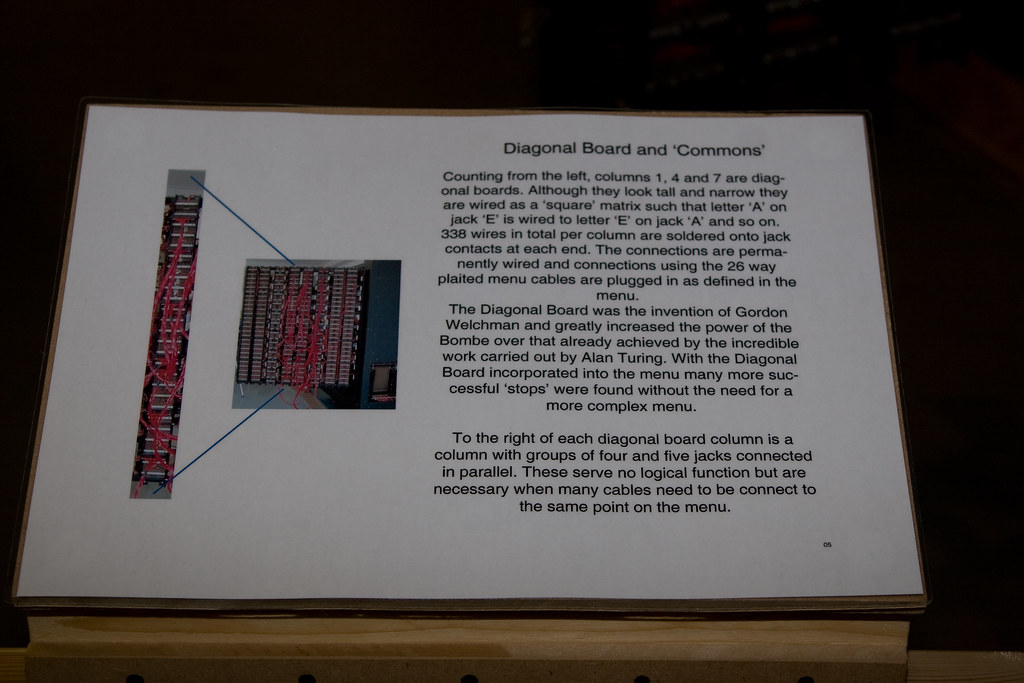 Diagonal Board and 'Commons'
Counting from the left, columns 1, 4 and 7 are diag-
onal boards. Although they look tall and narrow they
are wired as a 'square' matrix such that letter 'A' on
jack 'E' is wired to letter 'E' on jack 'A' and so on.
338 wires in total per column are soldered onto jack
contacts at each end. The connections are perma-
nently wired and connections using the 26 way
plaited menu cables are plugged in as defined in the
menu.
The Diagonal Board was the invention of Gordon
Welchman and greatly increased the power of the
Bombe over that already achieved by the incredible
work carried out by Alan Turing. With the Diagonal
Board incorporated into the menu many more suc-
cessful 'stops' were found without the need for a
more complex menu.
To the right of each diagonal board column is a
column with groups of four and five jacks connected
in parallel. These serve no logical function but are
necessary when many cables need to be connect to
the same point on the menu.
05